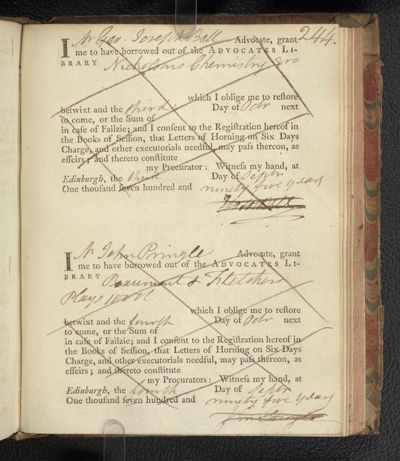 244.
I Mr Geo: Joseph Bell Advocate, grant
me to have borrowed out of the ADVOCATES LI-
BRARY Nicholsons Chemistry 8vo
which I oblige me to reſtore
betwixt and the third Day of Octr next
to come, or the Sum of
in caſe of Failzie; and I conſent to the Regiſtration hereof in
the Books of Seſſion, that Letters of Horning on Six Days
Charge, and other executorials needful, may paſs thereon, as
effeirs; and thereto conſtitute
my Procurator: Witneſs my hand, at
Edinburgh, the third Day of Septr
One thouſand ſeven hundred and ninety five years
I Mr John Pringle Advocate, grant
me to have borrowed out of the ADVOCATES LI-
BRARY Beaumont & Fletchers
Plays
which I oblige me to reſtore
betwixt and the fourth Day of Octr next
to come, or the Sum of
in caſe of Failzie; and I conſent to the Regiſtration hereof in
the Books of Seſſion, that Letters of Horning on Six Days
Charge, and other executorials needful, may paſs thereon, as
effeirs; and thereto conſtitute
my Procurators: Witneſs my hand, at
Edinburgh, the fourth Day of Septr
One thouſand ſeven hundred and ninety five years